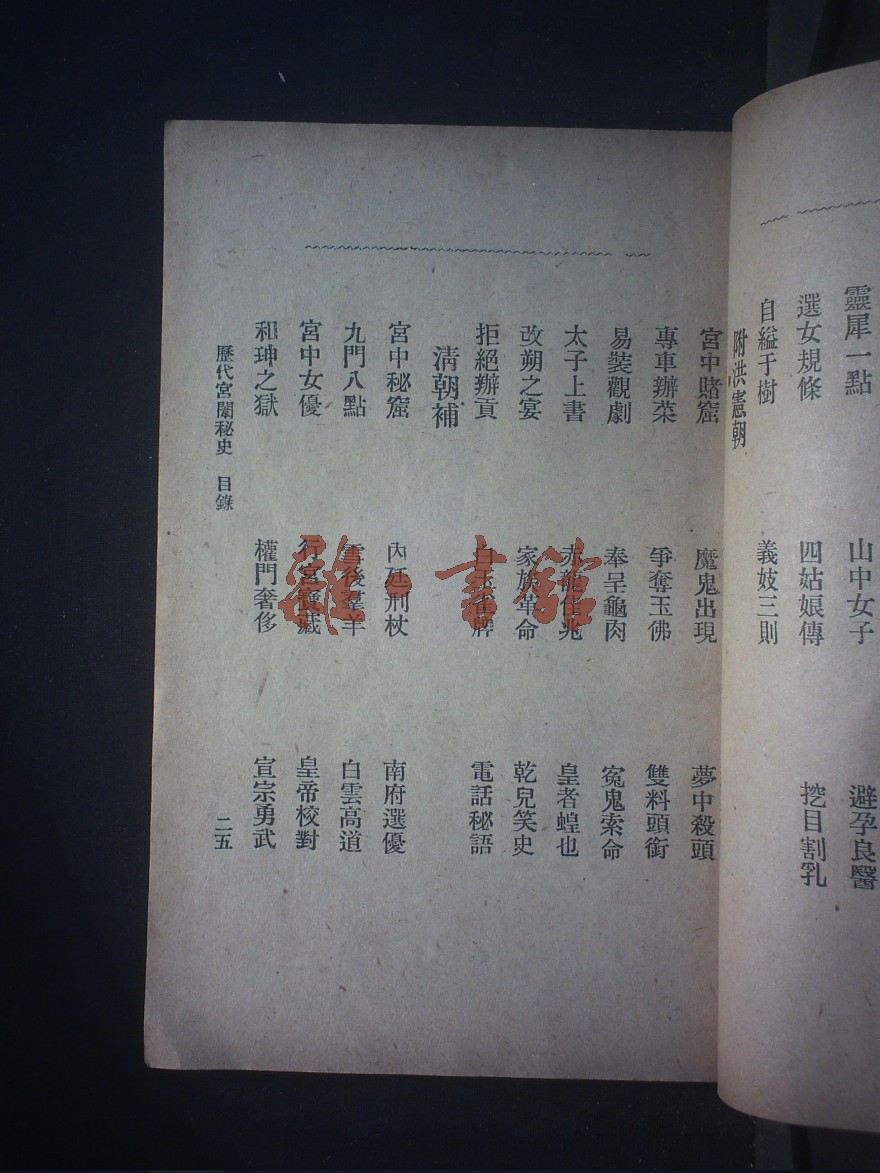 靈犀一點 山中女子 避孕良醫
選女規條 四姑娘傳 挖目割乳
自縊于樹 義妓三則
附洪憲朝
宮中賭窟 魔鬼出現 夢中殺頭
專車辦菜 爭奪玉佛 雙料頭銜
易裝觀劇 奉呈龜肉 冤鬼索命
太子上書 赤龍佳兆 皇者蝗也
改朔之宴 家族革命 乾兒笑史
拒絕辦貢 白玉雀牌 電話秘語
清朝補
宮中秘窟 內廷刑杖 南府選優
九門八點 雪後羣羊 白雲高道
宮中女優 行宮寶藏 皇帝校對
和珅之獄 權門奢侈 宣宗勇武
歷代宮闈秘史 目錄 二五
雜·書館